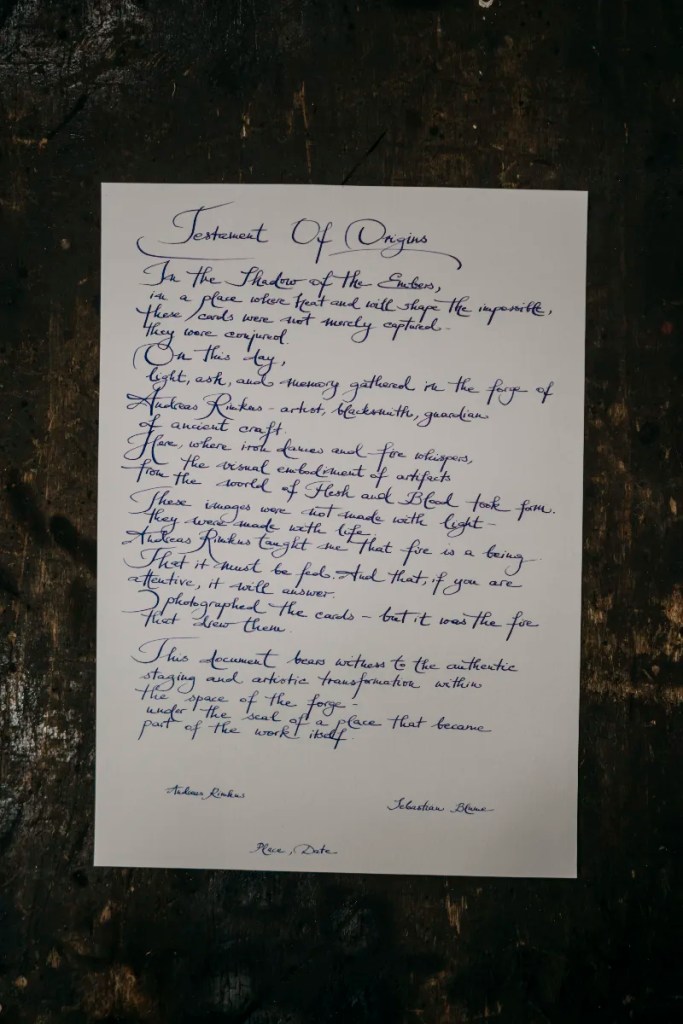 Testament Of Origins
In the Shadow of the Embers,
in a place where heat and will shape the impossible,
these cards were not merely captured -
they were conjured.
On this day,
light, ash, and memory gathered in the forge of
Andreas Rimkus - artist, blacksmith, guardian
of ancient craft.
Here, where iron dances and fire whispers,
the visual embodiment of artifacts
from the world of Flesh and Blood took form.
These images were not made with light -
they were made with life.
Andreas Rimkus taught me that fire is a being.
That it must be fed. And that, if you are
attentive, it will answer.
I photographed the cards - but it was the fire
that drew them.
This document bears witness to the authentic
staging and artistic transformation within
the space of the forge -
under the seal of a place that became
part of the work itself.
Andreas Rimkus
Sebastian Blume
Place, Date